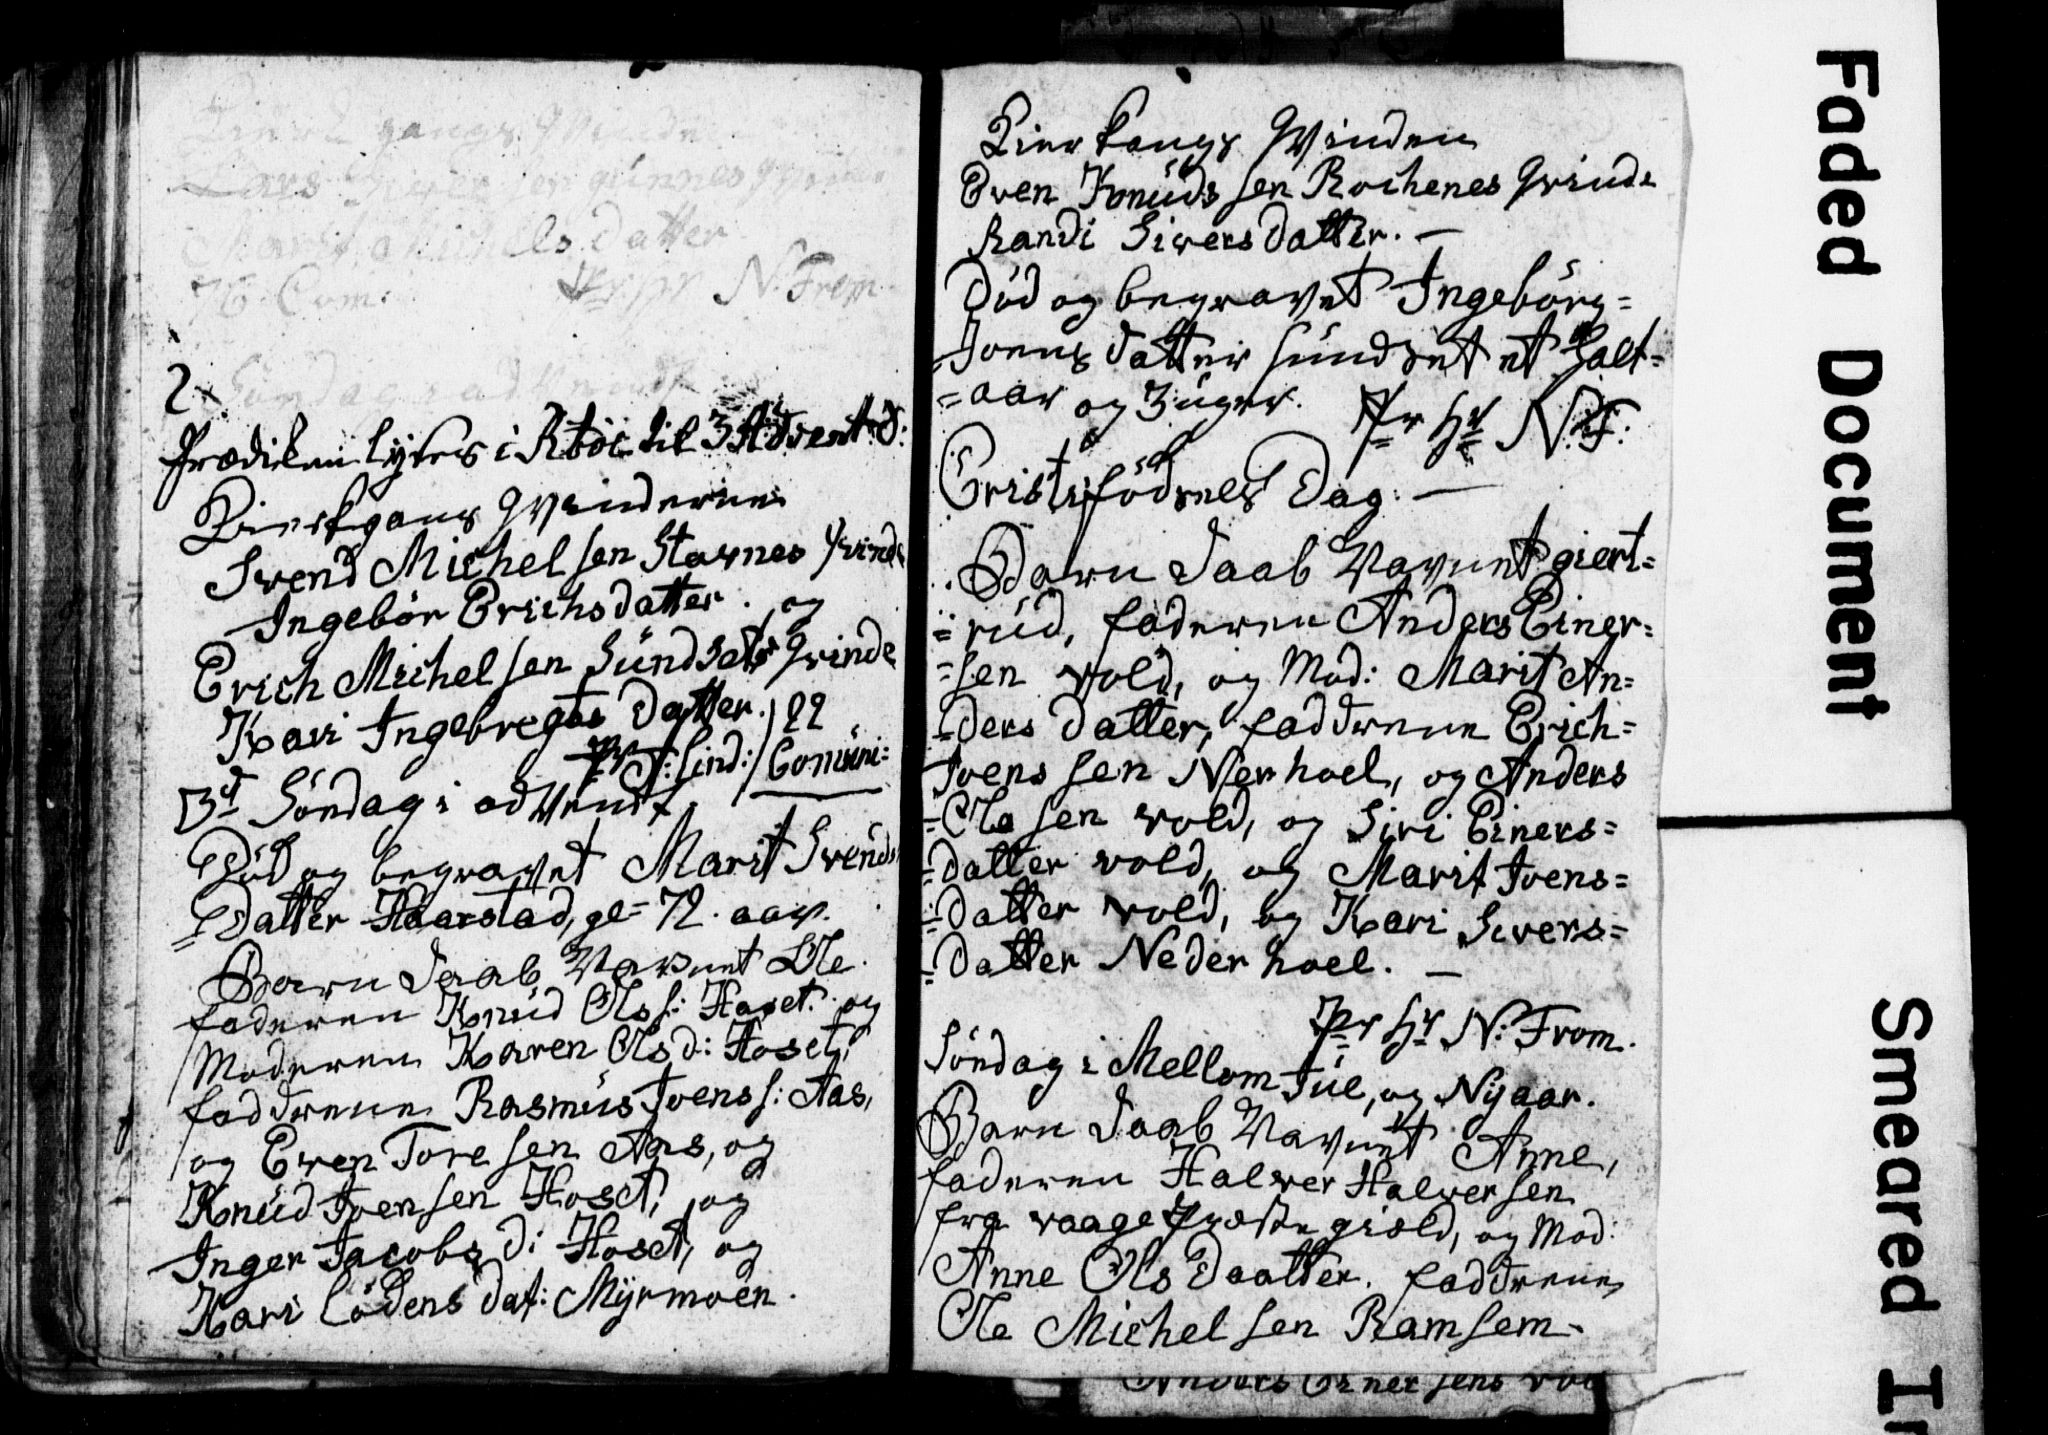 Kierkgangs Qvinden
Lars Siversen günnes Qvinde
Marit Michels datter
76 Com: Pr: Hr N. From
2 Söndag i advent
Prædiken lyses i Røboe til 3 Advent S:
Kierkgangs Qvinderne
Svend Michel sen Stavnes Qvinde
Ingebör Erichsdatter. og
Erich Michel sen Sündset Qvinde
Kari Ingebregts Datter. / 22
Pr T: Lind: / Comüni=
3d Söndag i advent
Död og begravet Marit Svends
=Datter Haarstad, ge= 72. aar.
Barn Daab Navnet Ole.
faderen Knüd Ols s: Hoset. og
Moderen Karen Ols d: Hoset,
faddrene Rasmüs Ivens s: Aas,
og Even Tore sen Aas, og
Knüd Iven sen Hoset, og
Inger Jacobs d: Hoset, og
Kari Lödens dat: Myrmoen.
Kierkangs Qvinden
Even Knüds sen Rochenes Qvinde
Randi Sivers datter. —
Död og begravet Ingebörg=
=Joens datter Sündset et Halt=
=aar og 3 üger. Pr Hr N. F.
Cristi födsels Dag. —
Barn Daab Navnet giert=
=rüd, faderen Anders Einer=
=sen vold, og Mod: Marit An=
=ders datter, faddrene Erich=
Ivens sen Nerhoel, og Anders
=Ole sen vold, og Siri Einers=
=datter vold, og Marit Ivens=
=datter vold, og Kari Sivers=
=datter Neder hoel. —
Pr Hr N: From.
Söndag i Mellom Jül, og Nyaar.
Barn Daab Navnet Anne,
faderen Halver Halversen
fra vaage Præste giæld, og Mod:
Anne Ols Daatter. faddrene
Ole Michel sen Ramsem.
Anders Einer sens